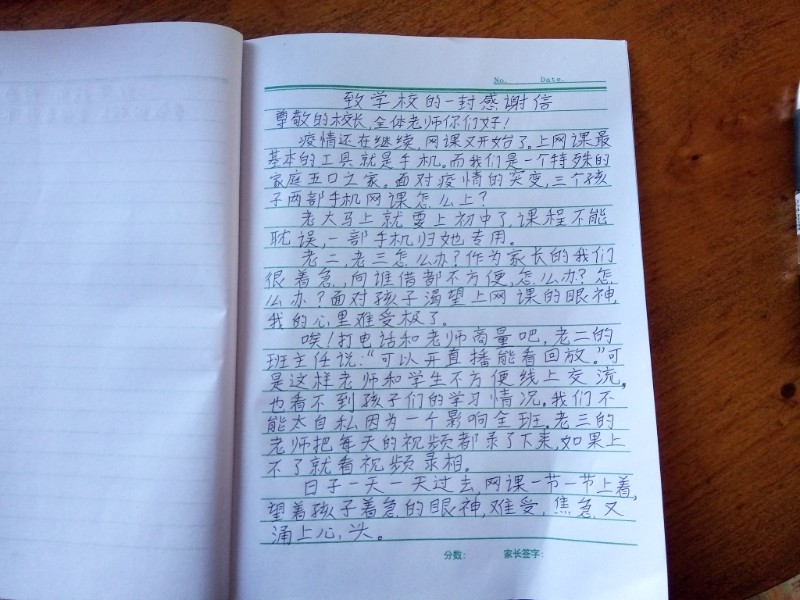 No. Date.
致学校的一封感谢信
尊敬的校长,全体老师你们好!
疫情还在继续,网课又开始了。上网课最
基本的工具就是手机。而我们是一个特殊的
家庭五口之家。面对疫情的突变,三个孩
子两部手机网课怎么上?
老大马上就要上初中了,课程不能
耽误,一部手机归她专用。
老二,老三怎么办?作为家长的我们
很着急,向谁借都不方便,怎么办?怎
么办?面对孩子渴望上网课的眼神,
我的心里难受极了。
唉!打电话和老师商量吧,老二的
班主任说:“可以开直播能看回放。”可
是这样老师和学生不方便线上交流,
也看不到孩子们的学习情况。我们不
能太自私因为一个影响全班。老三的
老师把每天的视频都录了下来,如果上
不了就看视频录相。
日子一天一天过去,网课一节一节上着,
望着孩子着急的眼神,难受,焦急又
涌上心头。
分数: 家长签字: